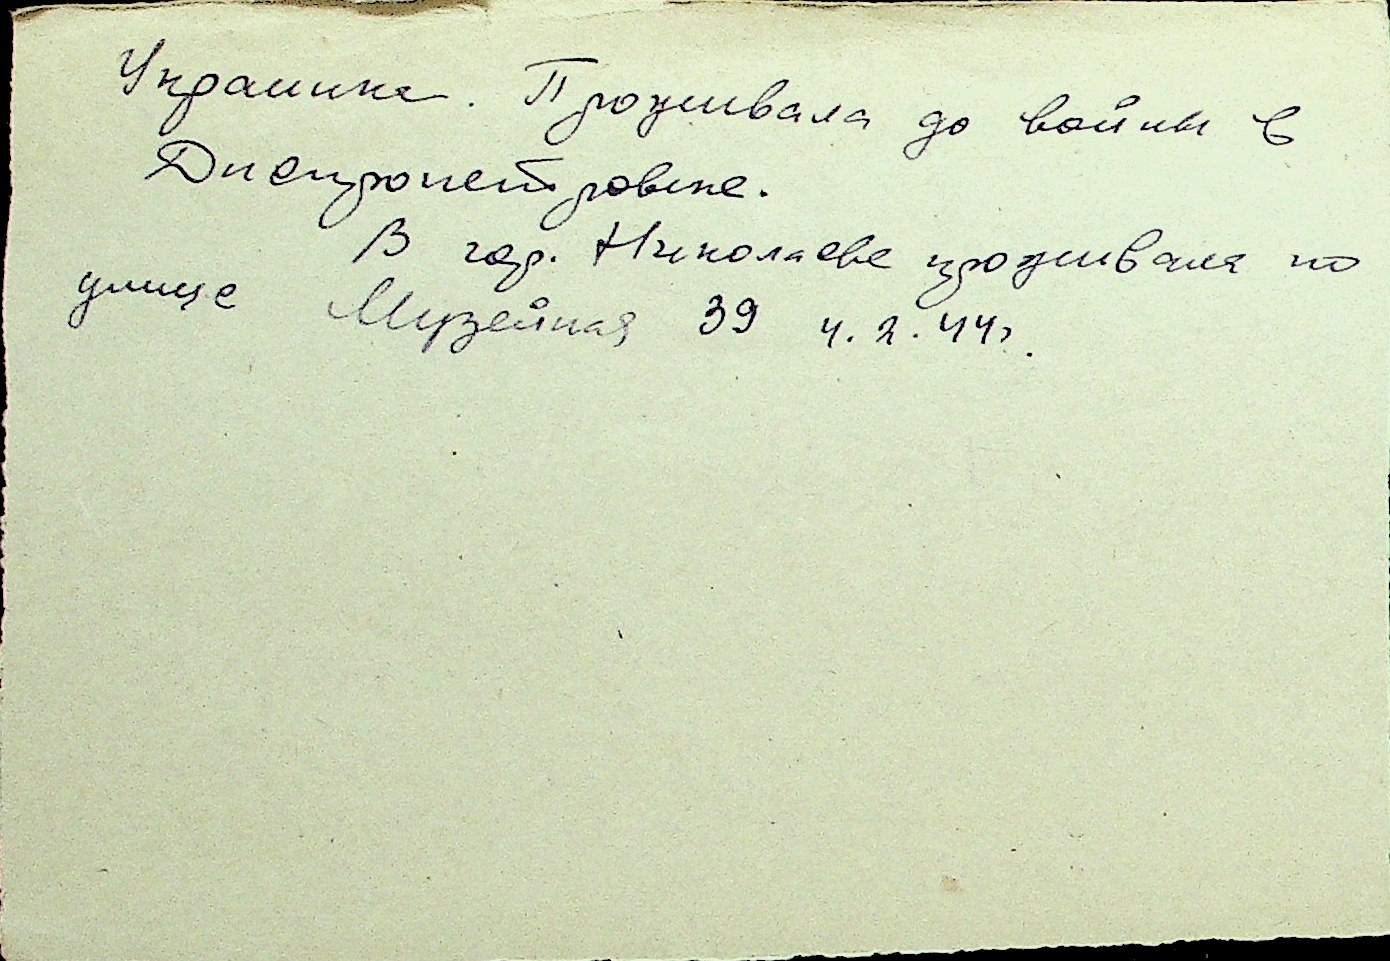 Украинка. Проживала до войны в
Днепропетровске.
В гор. Николаеве проживала по
улице Музейная 39 4.2.44г.